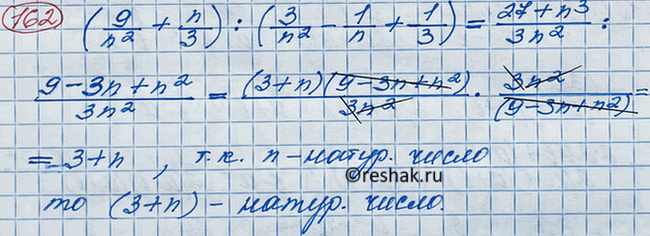 162 (9/n² + n/3) : (3/n² - 1/n + 1/3) = (27 + n³)/(3n²) :
(9 - 3n + n²)/(3n²) = ((3+n)(9 - 3n + n²))/(3n²) · (3n²)/((9 - 3n + n²)) =
= 3+n , т.к. n - натур. число
©reshak.ru
то (3+n) - натур. число.